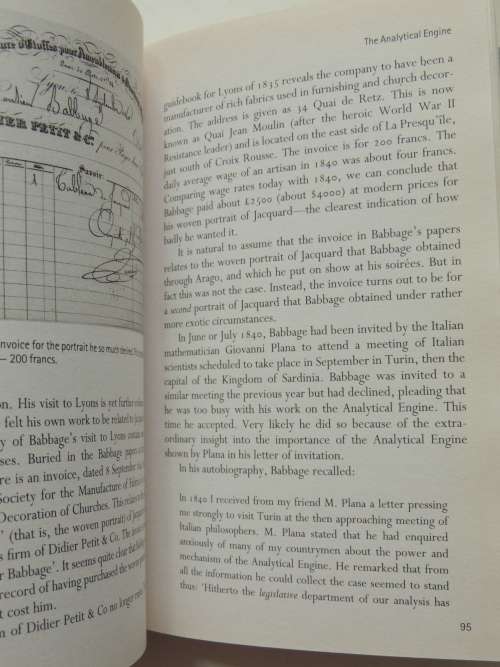 PETIT & Co.
Savoir:
nvoice for the portrait he so much desired.
— 200 francs.
on. His visit to Lyons is yet further
felt his own work to be related to
y of Babbage's visit to Lyons
ses. Buried in the Babbage papers
re is an invoice, dated 8 September
Society for the Manufacture of
Decoration of Churches. This relates
' (that is, the woven portrait of Jacquard
s firm of Didier Petit & Co. The
r Babbage'. It seems quite clear that
record of having purchased the woven
t cost him.
m of Didier Petit & Co no longer
The Analytical Engine
guidebook for Lyons of 1835 reveals the company to have been a
manufacturer of rich fabrics used in furnishing and church decor-
ation. The address is given as 34 Quai de Retz. This is now
known as Quai Jean Moulin (after the heroic World War II
Resistance leader) and is located on the east side of La Presqu'île,
just south of Croix Rousse. The invoice is for 200 francs. The
daily average wage of an artisan in 1840 was about four francs.
Comparing wage rates today with 1840, we can conclude that
Babbage paid about £2500 (about $4000) at modern prices for
his woven portrait of Jacquard—the clearest indication of how
badly he wanted it.
It is natural to assume that the invoice in Babbage's papers
relates to the woven portrait of Jacquard that Babbage obtained
through Arago, and which he put on show at his soirées. But in
fact this was not the case. Instead, the invoice turns out to be for
a second portrait of Jacquard that Babbage obtained under rather
more exotic circumstances.
In June or July 1840, Babbage had been invited by the Italian
mathematician Giovanni Plana to attend a meeting of Italian
scientists scheduled to take place in September in Turin, then the
capital of the Kingdom of Sardinia. Babbage was invited to a
similar meeting the previous year but had declined, pleading that
he was too busy with his work on the Analytical Engine. This
time he accepted. Very likely he did so because of the extra-
ordinary insight into the importance of the Analytical Engine
shown by Plana in his letter of invitation.
In his autobiography, Babbage recalled:
In 1840 I received from my friend M. Plana a letter pressing
me strongly to visit Turin at the then approaching meeting of
Italian philosophers. M. Plana stated that he had enquired
anxiously of many of my countrymen about the power and
mechanism of the Analytical Engine. He remarked that from
all the information he could collect the case seemed to stand
thus: 'Hitherto the legislative department of our analysis has
95